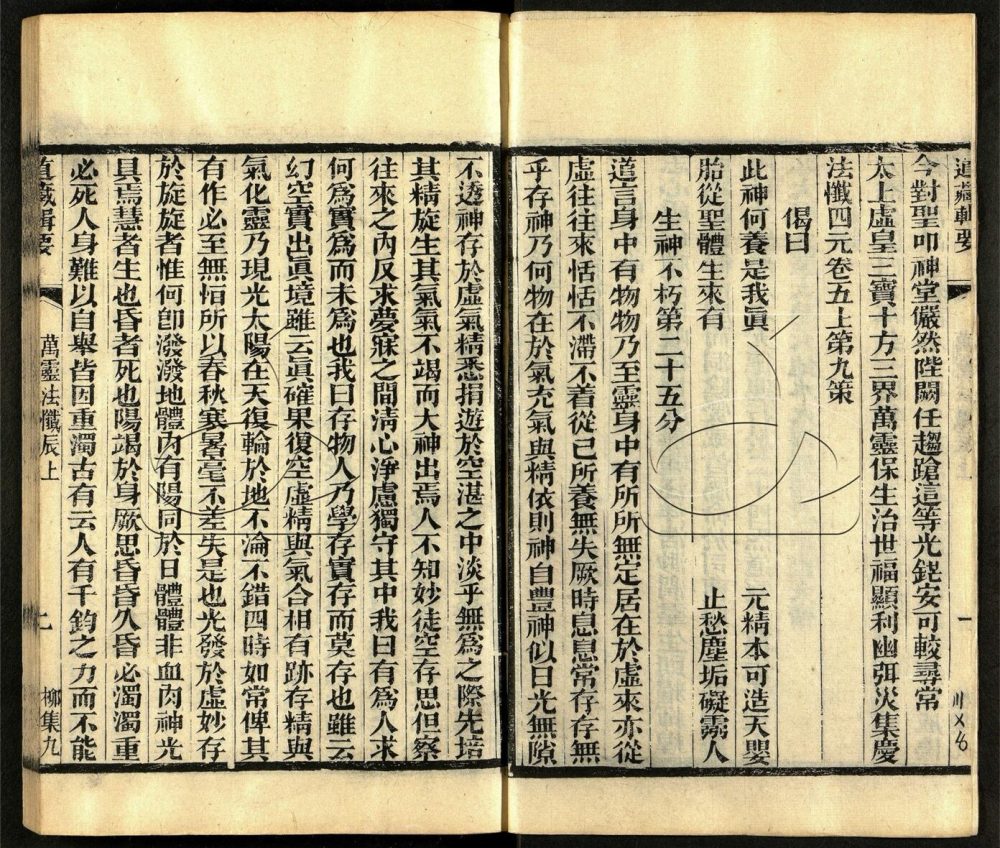 道藏輯要
今對聖叩神堂儼然陛闕任趨蹌這等光銠安可較尋常
太上虛皇三寶十方三界萬靈保生治世福顯利幽弭災集慶
法懺四元卷五上第九策
偈曰
此神何養是我眞 元精本可造天嬰
胎從聖體生來有 止愁塵垢礙靈人
生神不朽第二十五分
道言身中有物物乃至靈身中有所所無定居在於虛來亦從
虛往往來恬恬不滯不着從己所養無失厥時息息常存存無
乎存神乃何物在於氣充氣與精依則神自豐神似日光無隙
不透神存於虛氣精悉捐遊於空湛之中淡乎無爲之際先培
其精旋生其氣氣不竭而大神出焉人不知妙徒空存思但察
往來之內反求夢寐之間淸心淨慮獨守其中我曰有爲人求
何爲實爲而未爲也我曰存物人乃學存實存而莫存也雖云
幻空實出眞境雖云眞確果復空虛精與氣合相有跡存精與
氣化靈乃現光太陽在天復輪於地不淪不錯四時如常俾其
有作必至無恒所以春秋寒暑毫不差失是也光發於虛妙存
於旋旋者惟何卽潑潑地體內有陽同於日體體非血肉神光
具焉慧者生也昏者死也陽竭於身厥思昏昏久昏必濁濁重
必死人身難以自舉皆因重濁古有云人有千鈞之力而不能
道藏輯要 萬靈法懺辰上 柳集九